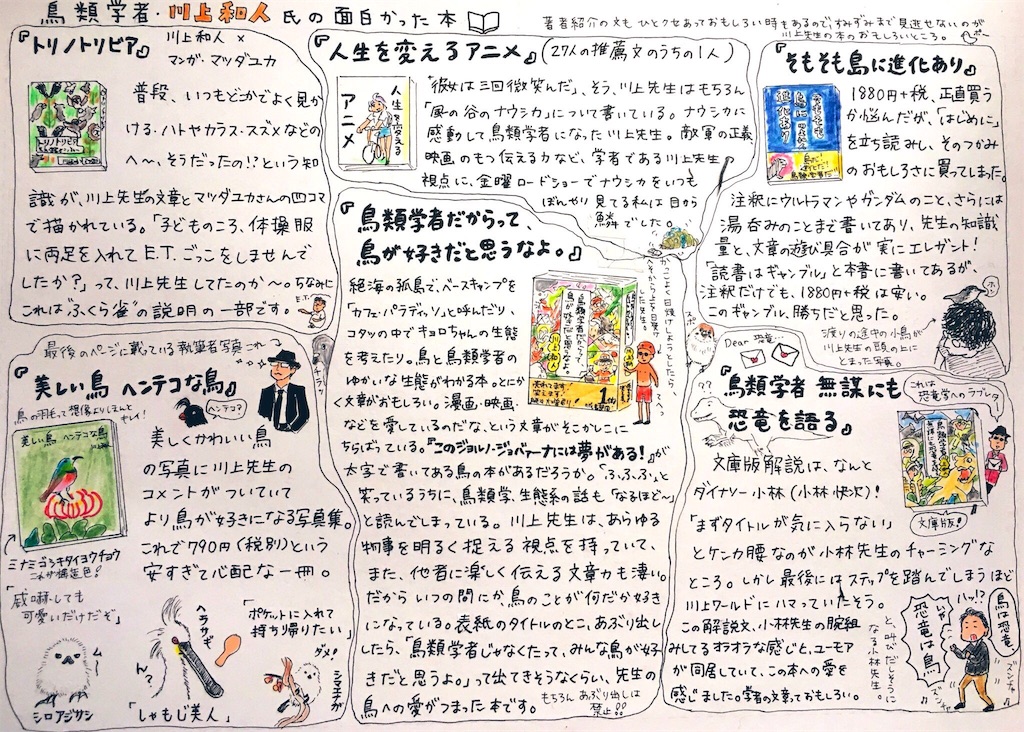 鳥類学者・川上和人氏の面白かった本
著者紹介の文もひとクセあっておもしろい時もあるので、すみずみまで見逃せないのが
川上先生の本のおもしろいところ。
『トリノトリビア』
川上和人 ×
マンガ・マツダユカ
トリノトリビア
普段、いつもどこかでよく見か
ける、ハトやカラス・スズメなどの
へ〜、そうだったの!?という知
識が、川上先生の文章とマツダユカさんの四コマ
で描かれている。「子どものころ、体操服
に両足を入れてE.T.ごっこをしませんで
したか?」って、川上先生してたのか〜。ちなみに
これは“ふくら雀”の説明の一部です。
E.T.
『人生を変えるアニメ』(27人の推薦文のうちの1人)
人生を変える
アニメ
“彼女は三回微笑んだ”、そう、川上先生はもちろん
「風の谷のナウシカ」について書いている。ナウシカに
感動して鳥類学者になった川上先生。敵軍の正義、
映画のもつ伝える力など、学者である川上先生の
視点に、金曜ロードショーでナウシカをいつも
ぼんやり見てる私は目から
鱗でした。
『そもそも島に進化あり』
1880円+税、正直買う
か悩んだが、「はじめに」
を立ち読みし、そのつかみ
のおもしろさに買ってしまった。
注釈にウルトラマンやガンダムのこと、さらには
湯呑みのことまで書いてあり、先生の知識
量と、文章の遊び具合が実にエレガント!
「読書はギャンブル」と本書に書いてあるが、
注釈だけでも、1880円+税は安い。
このギャンブル、勝ちだと思った。
渡りの途中の小鳥が
川上先生の頭の上に
とまった写真。
『鳥類学者だからって、
鳥が好きだと思うなよ。』
絶海の孤島で、ベースキャンプを
「カフェ・パラディッソ」と呼んだり、
コタツの中でキョロちゃんの生態
を考えたり。鳥と鳥類学者の
ゆかいな生態がわかる本。とにか
く文章がおもしろい。漫画・映画・
などを愛しているのだな、という文章がそこかしこに
ちらばっている。『このジョルノ・ジョバァーナには夢がある!』が
太字で書いてある鳥の本があるだろうか。「ふ、ふ、ふ」と
笑っているうちに、鳥類学、生態系の話も「なるほど〜」
と読んでしまっている。川上先生は、あらゆる
物事を明るく捉える視点を持っていて、
また、他者に楽しく伝える文章力も凄い。
だからいつの間にか、鳥のことが何だか好き
になっている。表紙のタイトルのとこ、あぶり出し
したら、「鳥類学者じゃなくたって、みんな鳥が好
きだと思うよ。」って出てきそうなくらい、先生の
鳥への愛がつまった本です。
もちろん、あぶり出しは
禁止!!
最後のページに載っている執筆者写真これ
チラッ
『美しい鳥 ヘンテコな鳥』
鳥の羽毛って想像よりほんと
キレイ!
ヘンテコ?
美しい鳥 ヘンテコな鳥
美しくかわいい鳥
の写真に川上先生の
コメントがついていて
より鳥が好きになる写真集。
これで790円(税別)という
安すぎて心配な一冊。
ミナミゴシキタイヨウチョウ
これが構造色!
「威嚇しても
可愛いだけだぞ」
ムー
シロアジサシ
ヘラサギ
ん?
「しゃもじ美人」
「ポケットに入れて
持ち帰りたい」
ダメ!
シマエナガ
Dear 恐竜…
??
『鳥類学者 無謀にも
恐竜を語る』
これは
恐竜学へのラブレター
文庫版!
文庫版解説は、なんと
ダイナソー小林(小林快次)!
「まずタイトルが気に入らない」
とケンカ腰なのが小林先生のチャーミングな
ところ。しかし最後にはステップを踏んでしまうほど
川上ワールドにハマっていたそう。
この解説文、小林先生の腕組
みしてるオラオラな感じと、ユーモア
が同居していて、この本への愛を
感じました。学者の文章っておもしろい。
ハッ!?
鳥は恐竜、
いや…
恐竜は鳥
ズンチャ
ズンチャ
と、叫びだしそうに
なる小林先生。